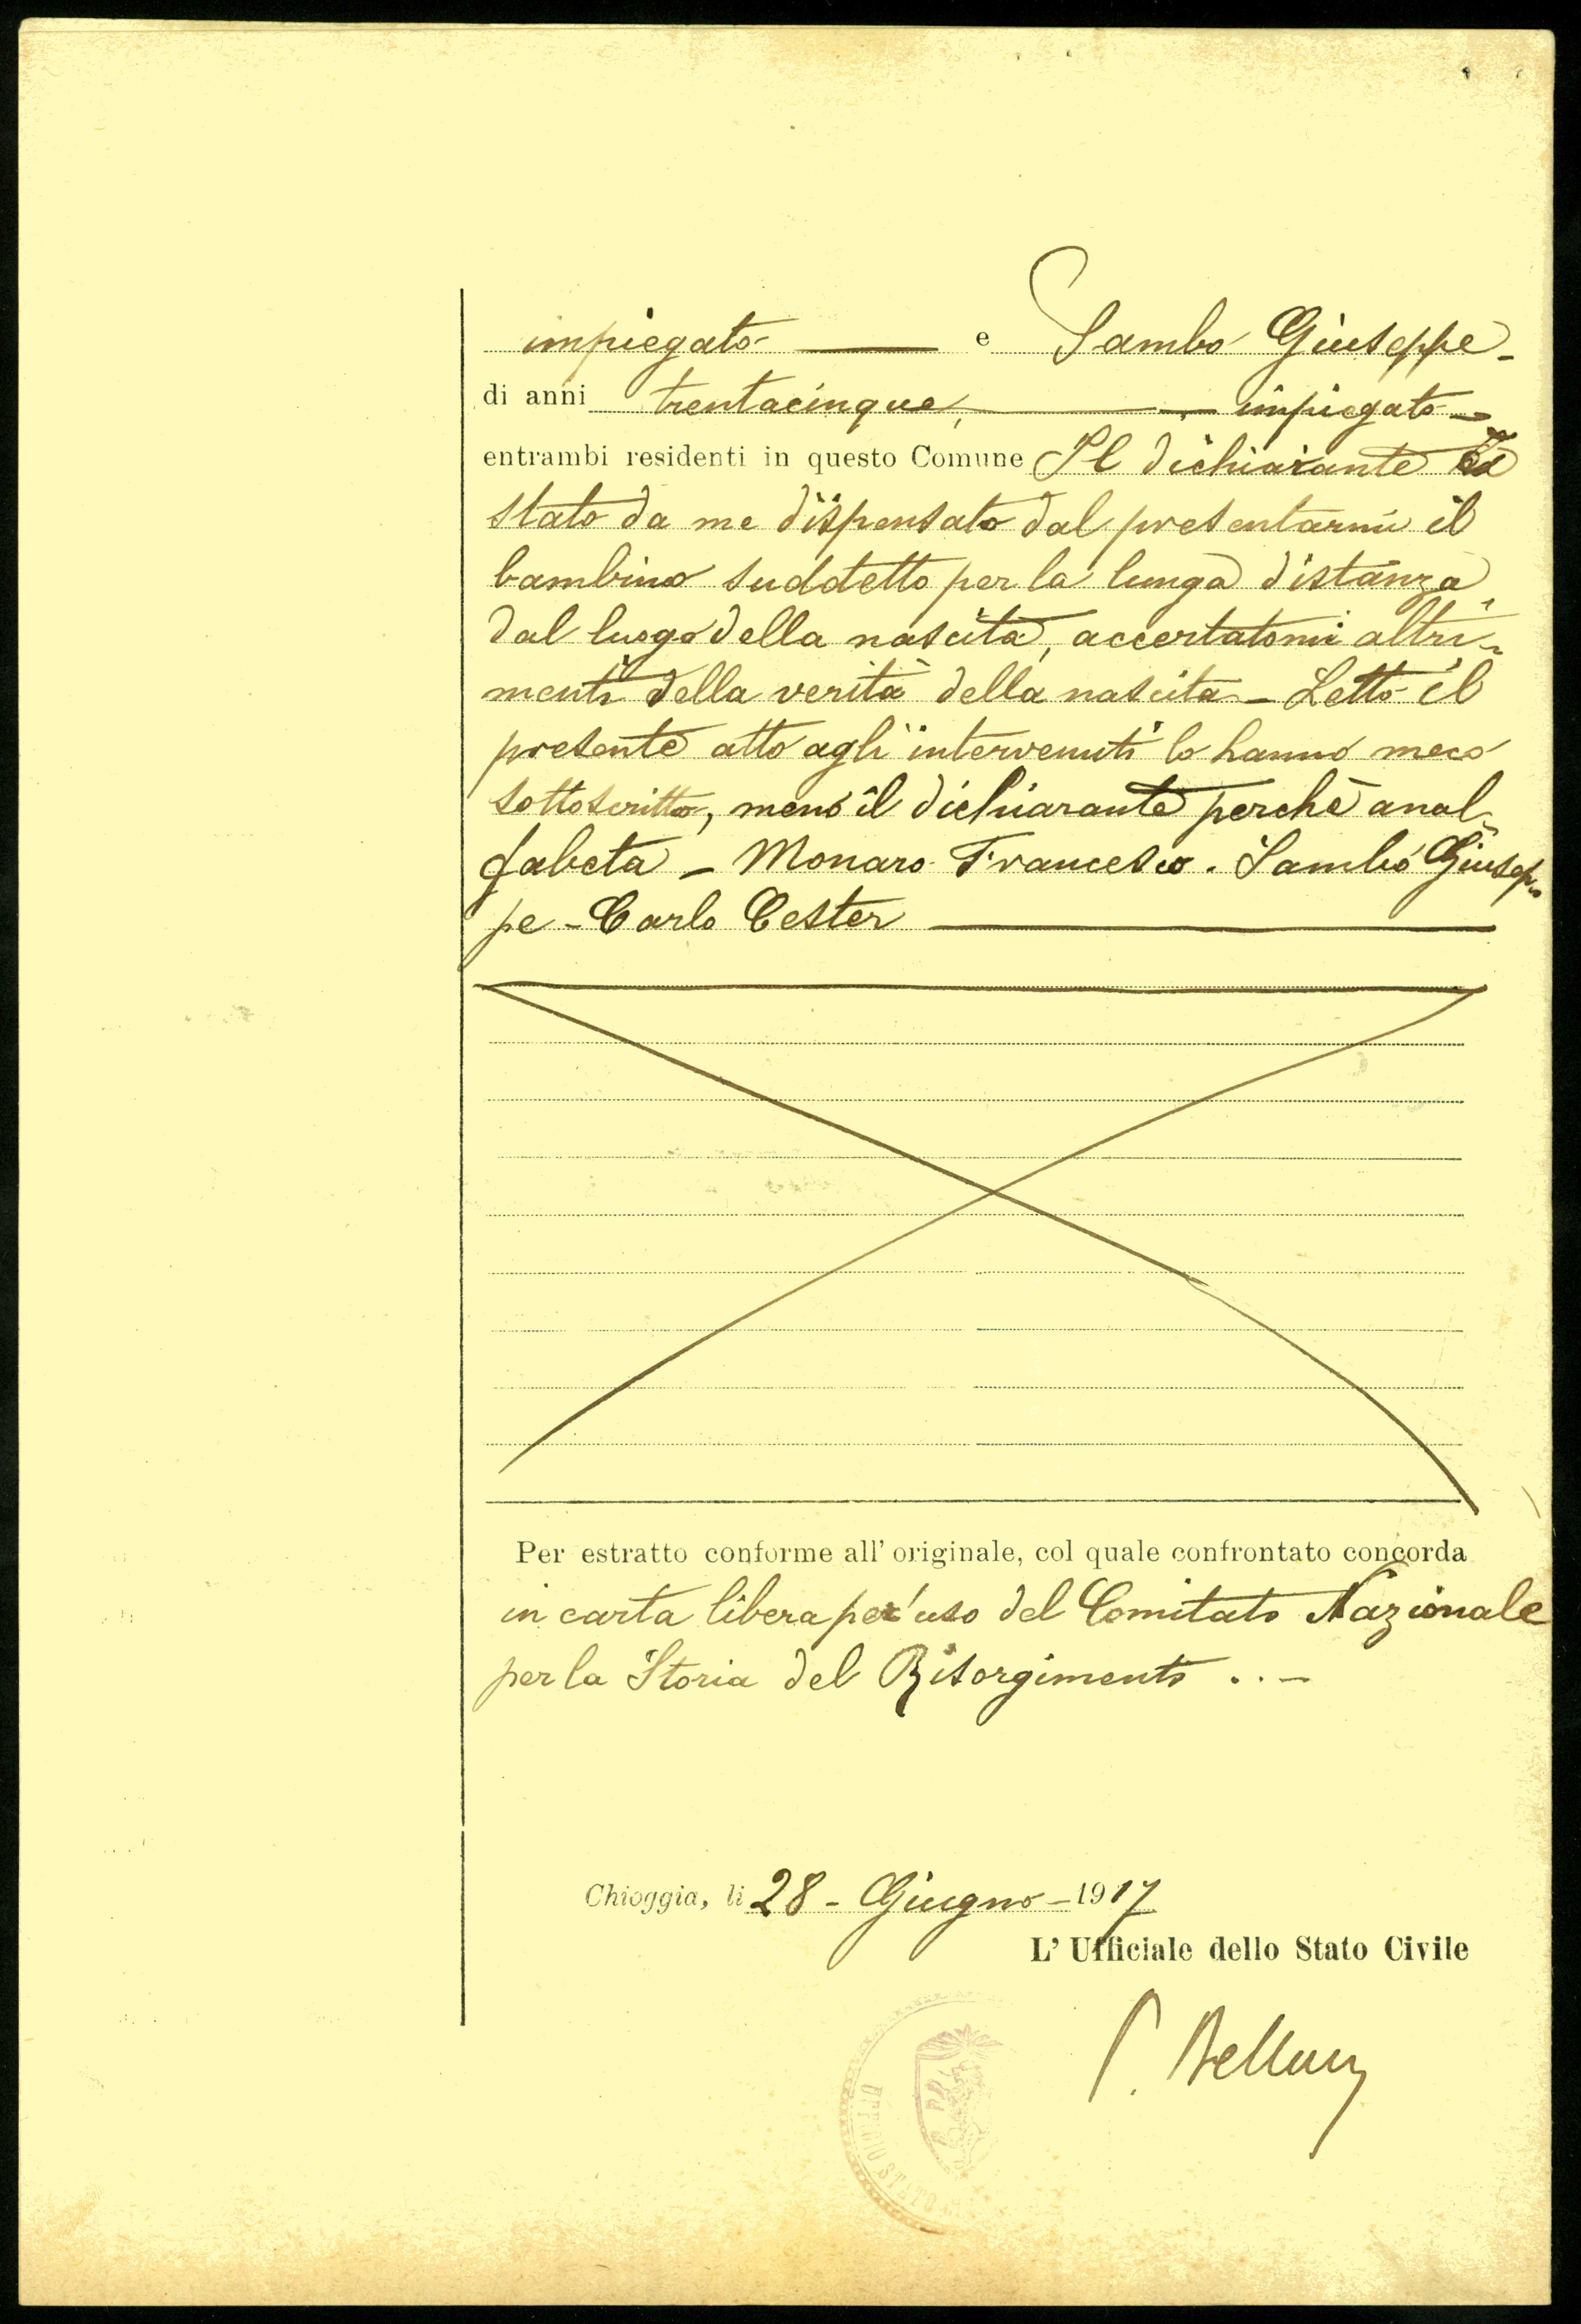 impiegato — e Sambo Giuseppe -
di anni trentacinque, — impiegato -
entrambi residenti in questo Comune Il dichiarante è
stato da me dispensato dal presentarmi il
bambino suddetto per la lunga distanza
dal luogo della nascita, accertatomi altri-
menti della verità della nascita - Letto il
presente atto agli intervenuti lo hanno meco
sottoscritto, meno il dichiarante perchè anal-
fabeta - Monaro Francesco. Sambo Giusep-
pe - Carlo Cester —
Per estratto conforme all' originale, col quale confrontato concorda
in carta libera per uso del Comitato Nazionale
per la Storia del Risorgimento . . -
Chioggia, li 28 - Giugno - 1917
L' Ufficiale dello Stato Civile
UFFICIO STATO